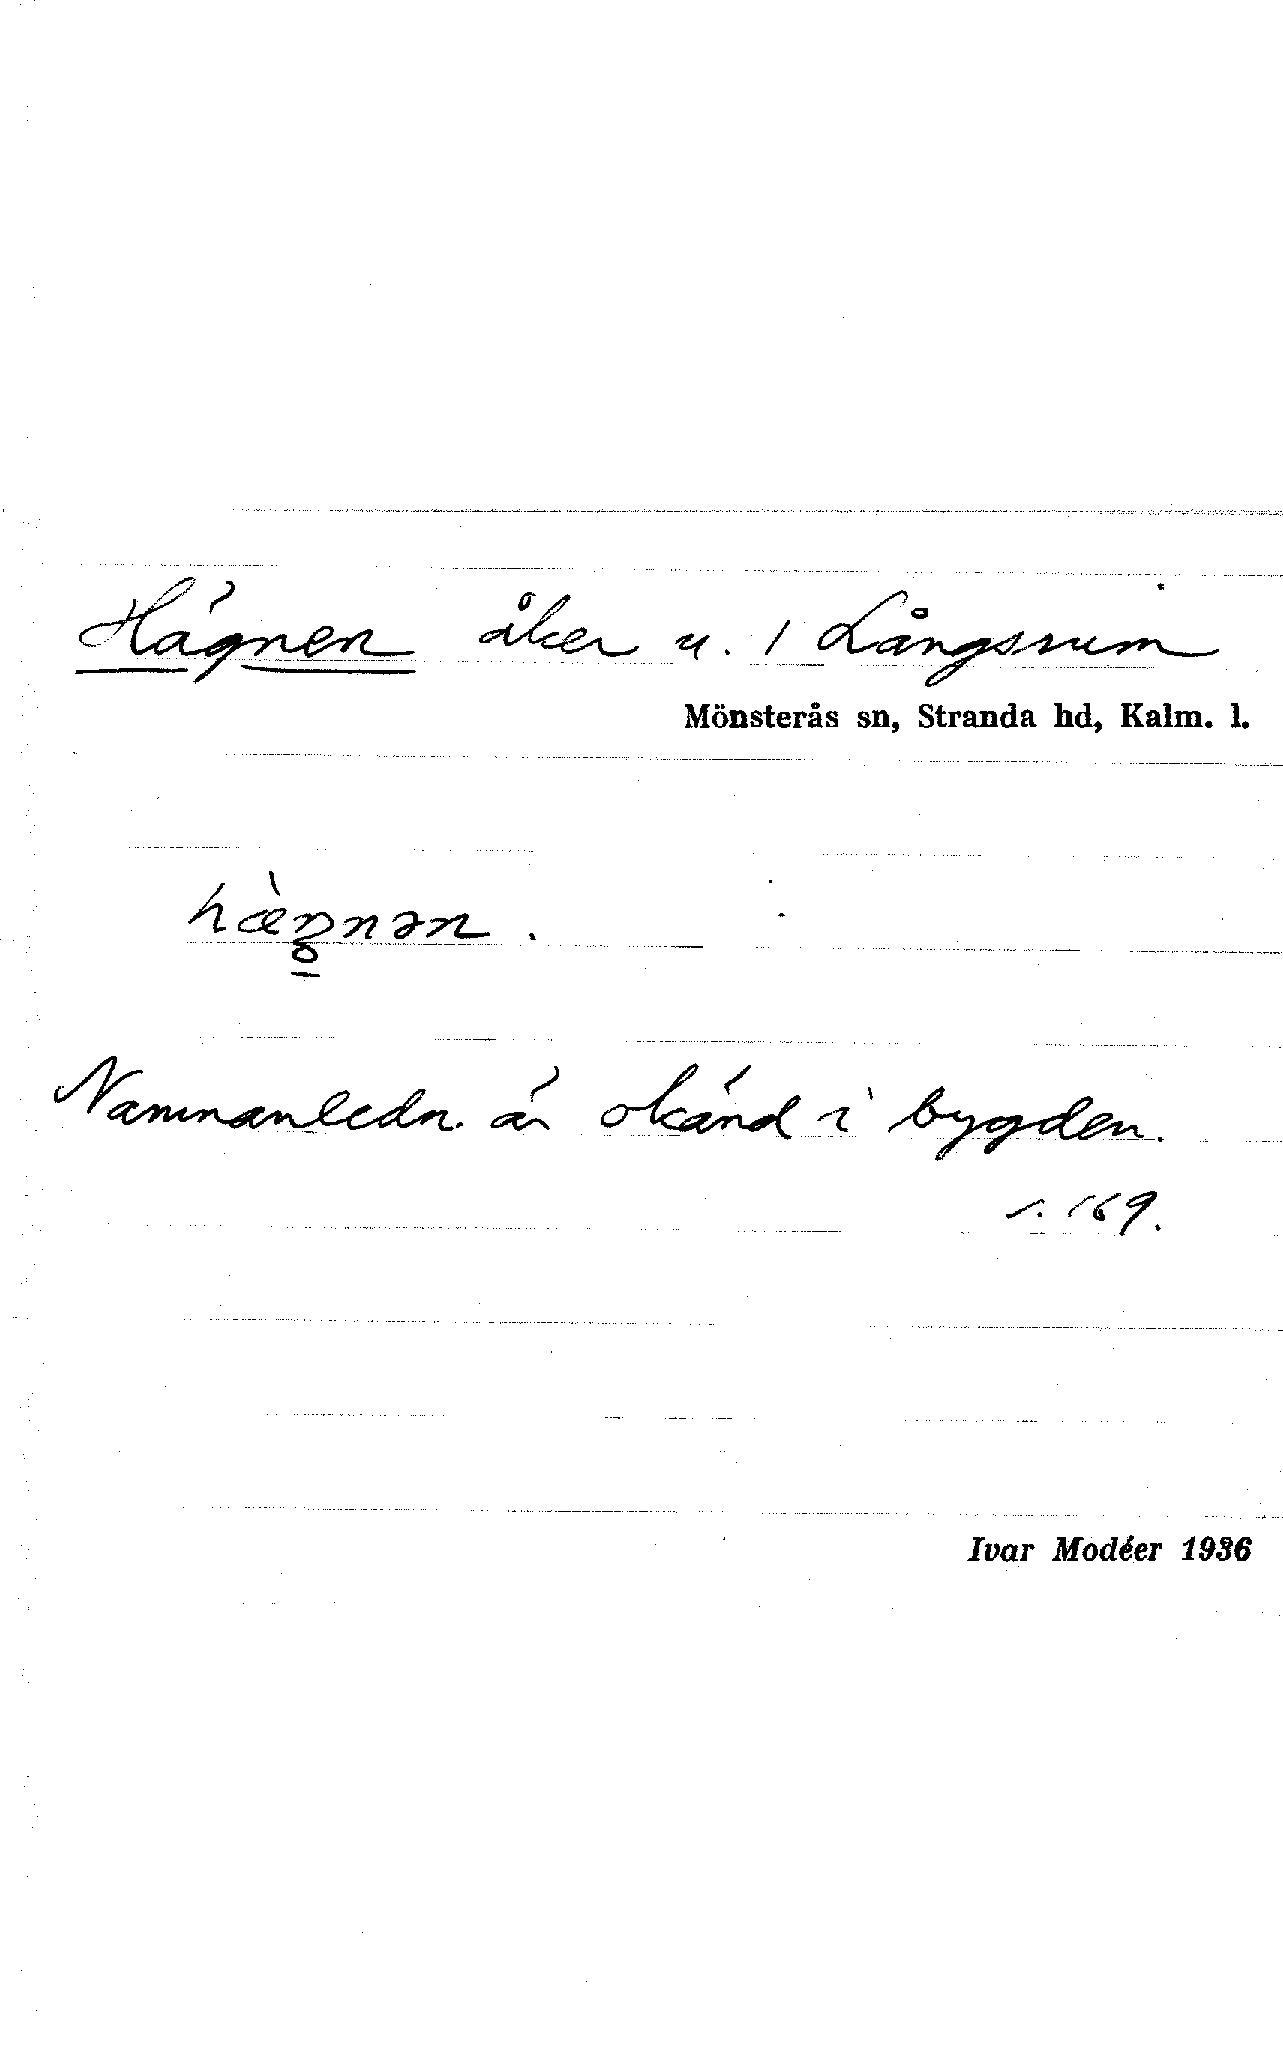 Hägnen åker u. 1 Långsrum
Mönsterås sn, Stranda hd, Kalm. l.
hæ̀ŋnən.
Namnanledn. är okänd i bygden.
s. 169.
Ivar Modéer 1936